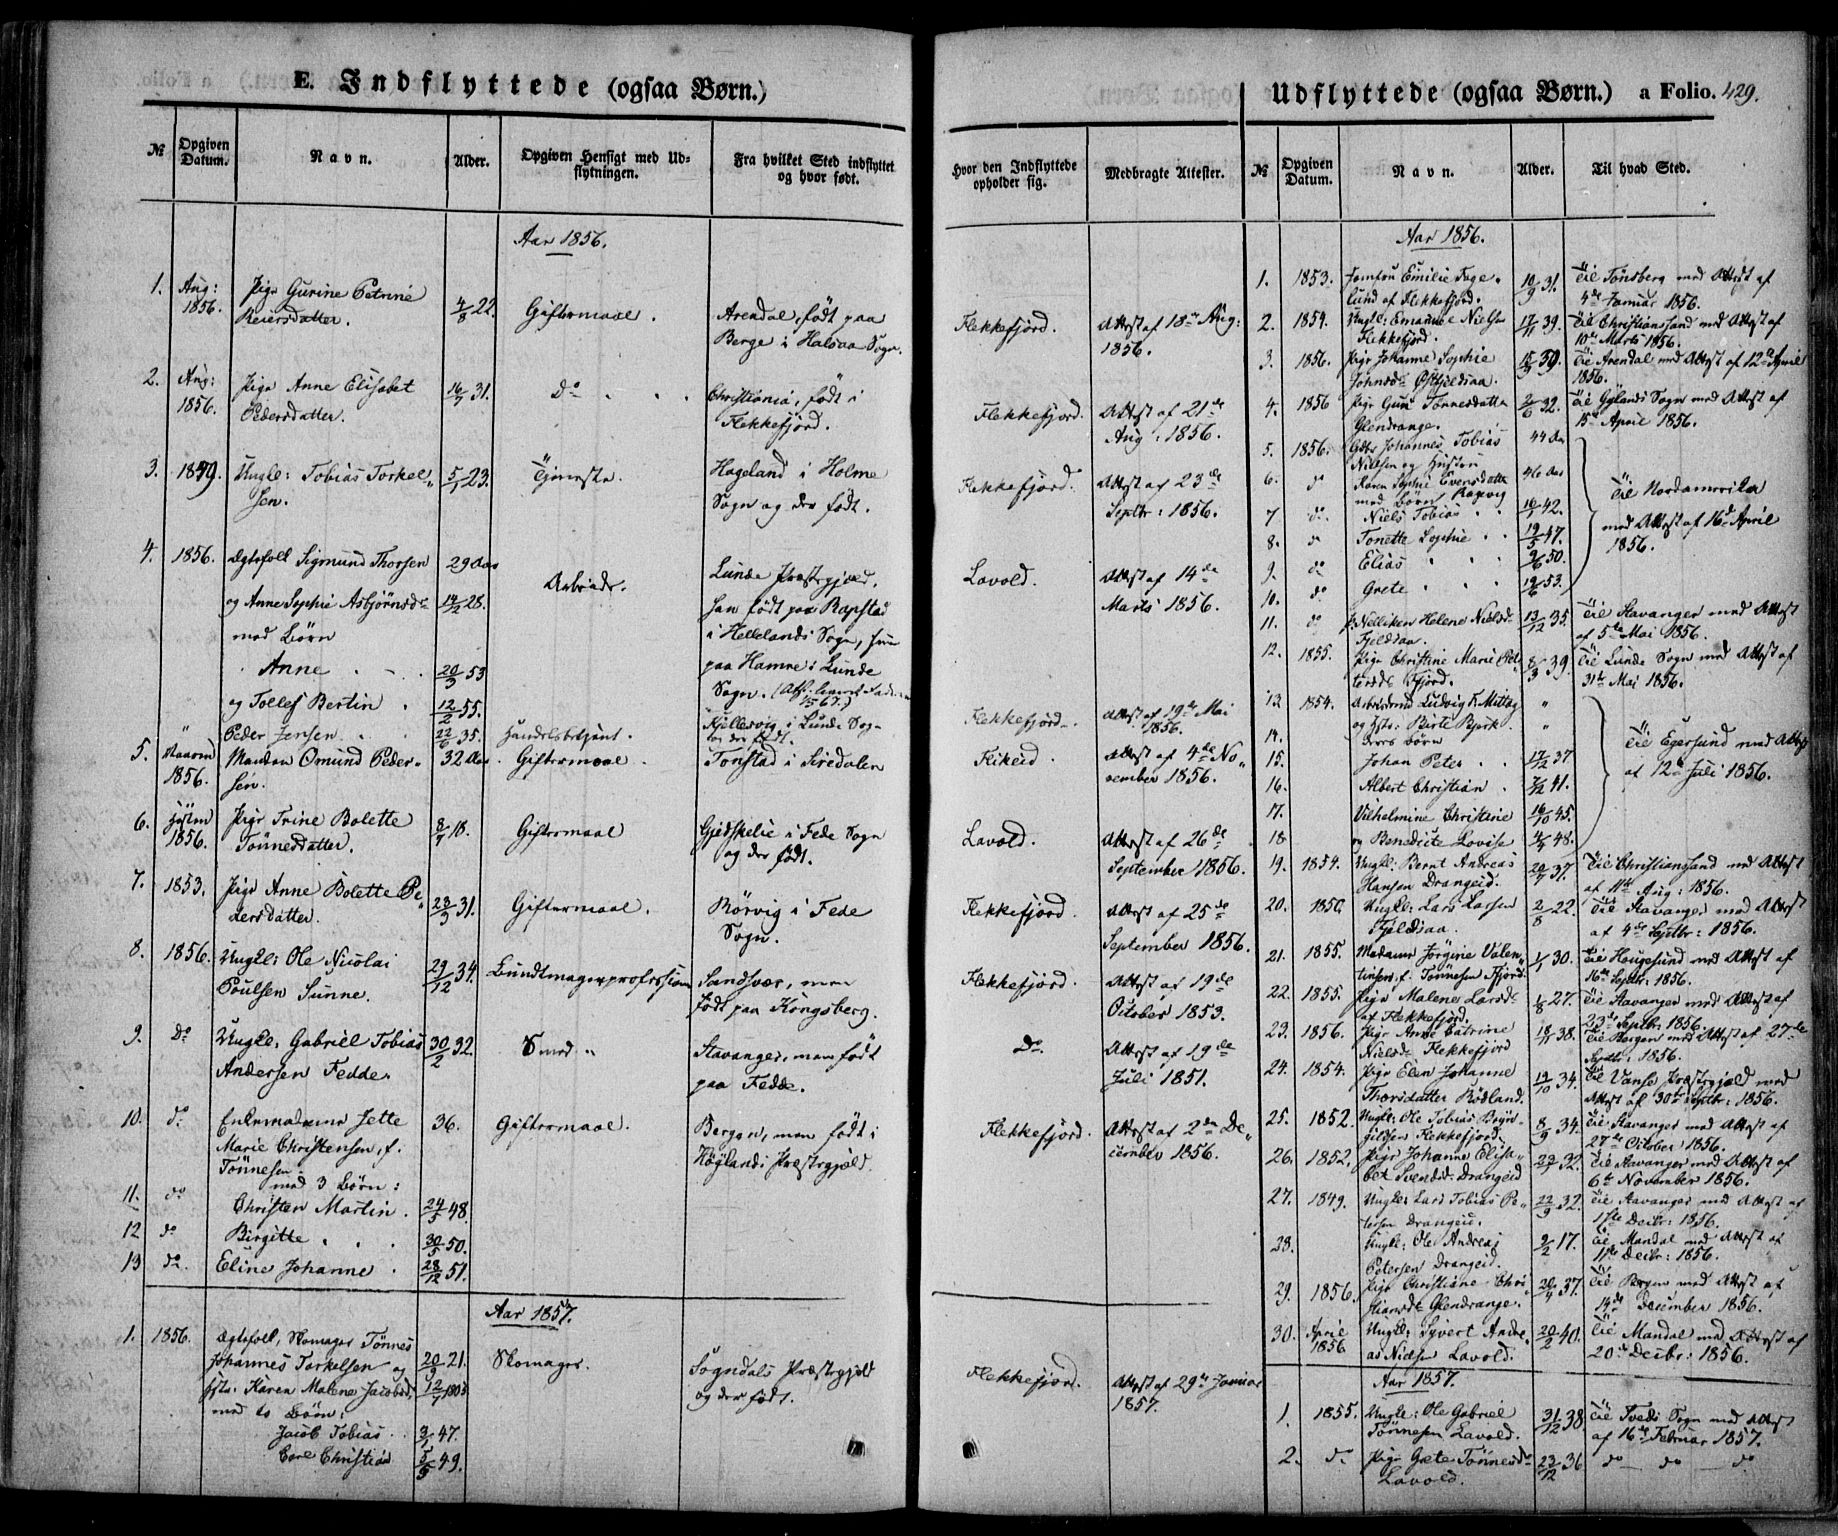 E. Indflyttede (ogsaa Børn.)
№
Opgiven Datum.
Navn.
Alder.
Opgiven Hensigt med Udflytningen.
Fra hvilket Sted indflyttet og hvor født.
Aar 1856.
1. Aug: 1856. Pige Gurine Petrine Reiersdatter. 4/8 22. Giftermaal. Arendal, født paa Berge i Halsaa Sogn.
2. Aug: 1856. Pige Anne Elisabet Pedersdatter. 16/7 31. do Christiania, født i Flekkefjord.
3. 1849. Ungk: Tobias Torkelsen. 5/1 23. Tjeneste. Hageland i Holme Sogn og der født.
4. 1856. Ægtefolk Sigmund Thorsen 29 Aar
og Anne Sophie Asbjørnsdr 14/2 28. Arbeide. Lunde Præstegjeld.
med Børn
Anne 20/3 53
og Tollef Bertin 12/2 55.
Han født paa Rapstad
i Hellelands Sogn, hun
paa Hamre i Lunde
Sogn.
" Peder Jensen 22/6 35. Handelsbetjent. Kjellesvig i Lunde Sogn der født.
5. 1856. Manden Omund Pedersen. 32 Aar. Giftermaal. Tonstad i Siredalen
6. Høsten 1856. Pige Trine Bolette Tønnesdatter. 8/7 18. Giftermaal i Fede Sogn og der født.
7. 1853. Pige Anne Bolette Pedersdatter. 23/3 31. Giftermaal. Rørvig i Fede Sogn.
8. 1856. Ungk: Ole Nicolai Poulsen Sunne. 29/12 34. Bundtmagerprofession Sandsvær, men født paa Kongsberg.
9. Do Ungk: Gabriel Tobias Andersen Fedde. 30/2 32. Smed " Stavanger, men født paa Fedde.
10. do Enkemadame Jette Marie Christensen, f. Tønnesen 36. Giftermaal. Bergen, men født i Høylands Præstegjeld.
med 3 Børn:
11. do Christen Martin. 24/5 48.
12 do Birgitte 30/5 50.
13 do Eline Johanne 28/12 51.
Aar 1857.
1. 1856. Ægtefolk, Skomager Tønnes
Johannes Torkelsen og 20/9 21. Skomager. Sogndals Præstegjeld
Hst: Karen Malene Jacobsd. 12/7 1803 og der født.
med to Børn:
Jacob Tobias 3/1 47.
Carl Christian 5/9 49.
Hvor den Indflyttede opholder sig.
Medbragte Attester.
Flekkefjord. Attest af 18de Aug: 1856.
Flekkefjord. Attest af 21de Aug: 1856.
Flekkefjord. Attest af 23de Septbr: 1856.
Lavold. Attest af 14de Marts 1856.
Flekkefjord. Attest af 19de Mai 1856.
Fikeid. Attest af 4de November 1856.
Lavold. Attest af 26de September 1856.
Flekkefjord. Attest af 25de September 1856.
Flekkefjord. Attest af 19de October 1853.
Do. Attest af 19de Juli 1851.
Flekkefjord. Attest af 2den December 1856.
Flekkefjord. Attest af 29de Januar 1857.
Udflyttede (ogsaa Børn.) a Folio. 429.
№
Opgiven Datum.
Navn.
Alder.
Til hvad Sted.
Aar 1856.
1. 1853. Jomfru Emilie Fagelund af Flekkefjord. 10/9 31. Til Tønsberg med Attest af 4de Januar 1856.
2. 1854. Ungk: Emanuel Nielsen Flekkefjord. 17/11 39. Til Christianssand med Attest af 10de Marts 1856.
3. 1856. Pige Johanne Sophie Johnsdr Østfjeldsaa. 15/9 39. Til Arendal med Attest af 12te April 1856.
4. 1856 Pige Guri Tønnesdatter Glendrange. 2/6 32. Til Gylands Sogn med Attest af 15de April 1856.
5. 1856. Johannes Tobias Nielsen og Hustru 44 Aar
6. do Karen Sophie Evensdatter 46 Aar
med Børn Ragevig
7 do Niels Tobias 10/1 42.
8. do Tonette Sophie 19/5 47.
9. do Elias 9/6 50.
10. do Grete 19/6 53.
Til Nordamerika
med Attest af 16de April
1856.
11. do p. Nelliken Helene Nielsdr Fjeldsaa. 13/12 35. Til Stavanger med Attest af 5te Mai 1856.
12. 1855. Pige Christine Marie Petersdr Fjord. 8/3 39. Til Lunde Sogn med Attest af 31te Mai 1856.
13 1854. Arbeidsmd Ludvig F. Mittag "
14. og Hst: Birte Bjerk "
deres Børn
15. Johan Peter 17/12 37
16. Albert Christian 7/12 41.
17. Vilhelmine Christine 16/10 45.
18 og Benedicte Lovise 4/4 48.
Til Egersund med Attest
af 12te Juli 1856.
19. 1854. Ungk: Bernt Andreas Hansen Drangeid. 20/7 37. Til Christianssand med Attest af 11te Aug: 1856.
20. 1850. Ungk: Lars Larsen Fjeldsaa. 2/8 22. Til Stavanger med Attest af 4de Septbr: 1856.
21. 1855. Madame Jørgine Valentinsen, f. Tønnesen Fjord. 1/1 30. Til Haugesund med Attest af 16de Septbr: 1856.
22. 1855. Pige Malene Larsdr af Flekkefjord. 1/8 27. Til Stavanger med Attest af 23de Septbr: 1856.
23. 1856. Pige Anne Catrine Nielsdr Flekkefjord 18/11 38. Til Bergen med Attest af 27de Septbr: 1856.
24. 1854. Pige Elen Johanne Thorsdatter Rødland. 19/10 34. Til Vanse Præstegjeld med Attest af 30te Septbr: 1856.
25. 1852. Ungk: Ole Tobias Flekkefjord. 8/9 34. Til Stavanger med Attest af 27de October 1856.
26. 1852. Pige Johanne Elisabet Svendsdr Drangeid 29/7 32. Til Stavanger med Attest af 6te November 1856.
27. 1849. Ungk: Lars Tobias Petersen Drangeid. 22/9 32. Til Stavanger med Attest af 1ste Decbr: 1856.
28. Ungk: Ole Andreas Petersen Drangeid. 2/2 17. Til Mandal med Attest af 11te Decbr: 1856.
29. 1856. Pige Christiane Christiansdr Glendrange. 20/4 37. Til Bergen med Attest af 14de December 1856.
30. April 1856 Ungk: Syvert Andreas Nielsen Lavold. 20/2 40. Til Mandal med Attest af 20de Decbr: 1856.
Aar 1857.
1. 1855. Ungk: Ole Gabriel Tønnesen Lavold. 31/12 38. Til Tveds Sogn med Attest af 16de Februar 1857.
2. do Pige Grete Tønnesdr Lavold. 23/12 36 do do do